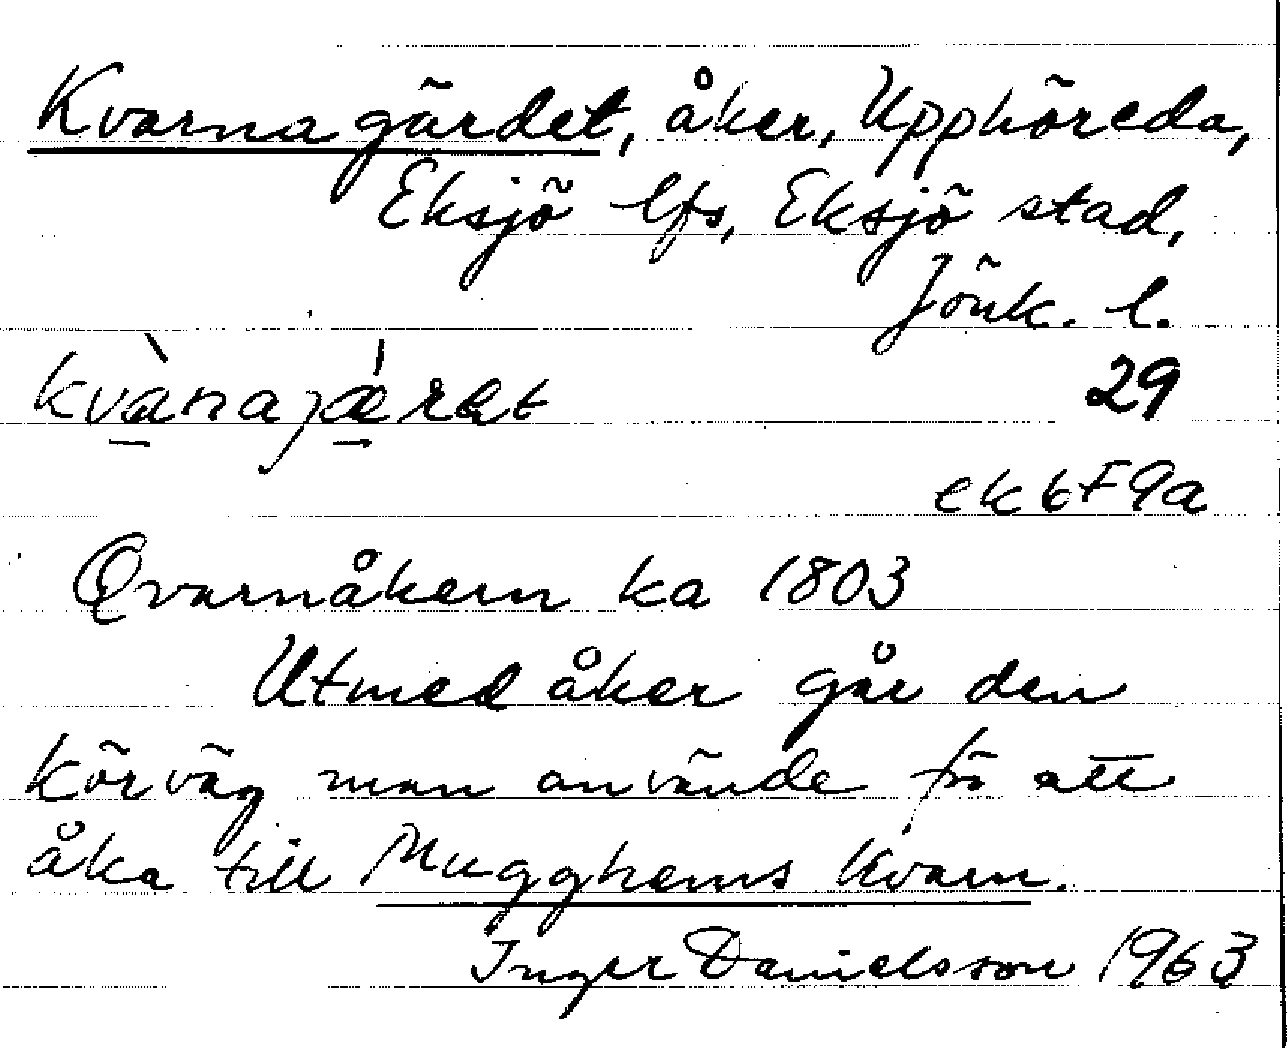 Kvarnagärdet, åker, Upphöreda,
Eksjö lfs, Eksjö stad,
Jönk. l.
kvànajǽrət 29
ek 6F9a
Qvarnåkern ka 1803
Utmed åker går den
körväg man använde för att
åka till Mugghems kvarn.
Inger Danielsson 1963